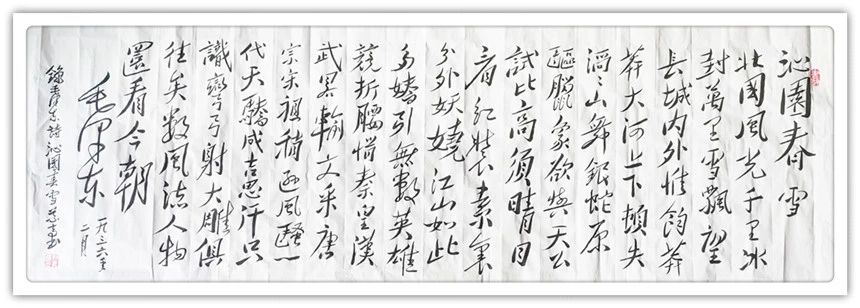 沁園春 雪
北國風光千里冰
封萬里雪飄望
長城内外惟餘莽
莽大河上下頓失
滔〻山舞銀蛇原
驅臘象欲與天公
試比高須晴日
看紅裝素裹
分外妖嬈江山如此
多嬌引無數英雄
競折腰惜秦皇漢
武畧輸文采唐
宗宋祖稍遜風騷一
代天驕成吉思汗只
識彎弓射大雕俱
往矣數風流人物
還看今朝
毛澤東
一九三六年
二月
錄毛澤東詩沁園春雪